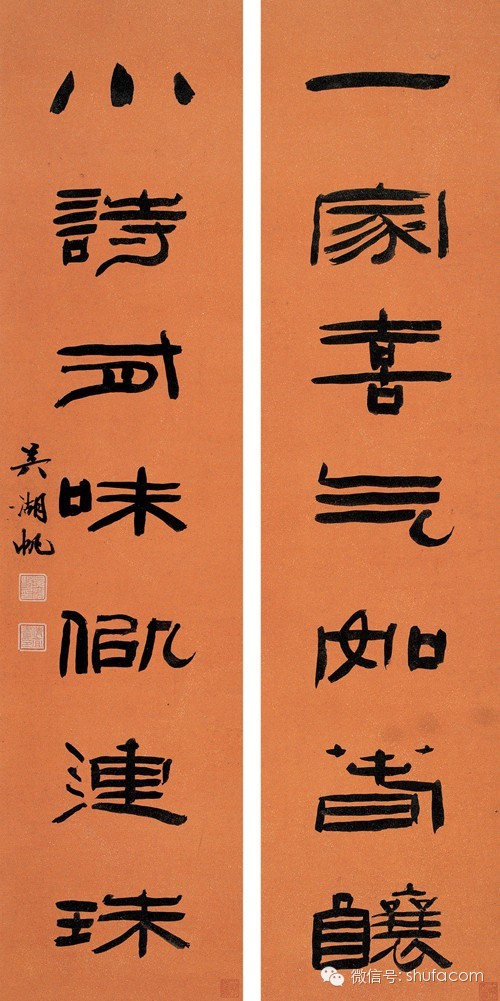 一家喜气如春釀
小詩有味似連珠
吳湖帆
微信号: shufacom